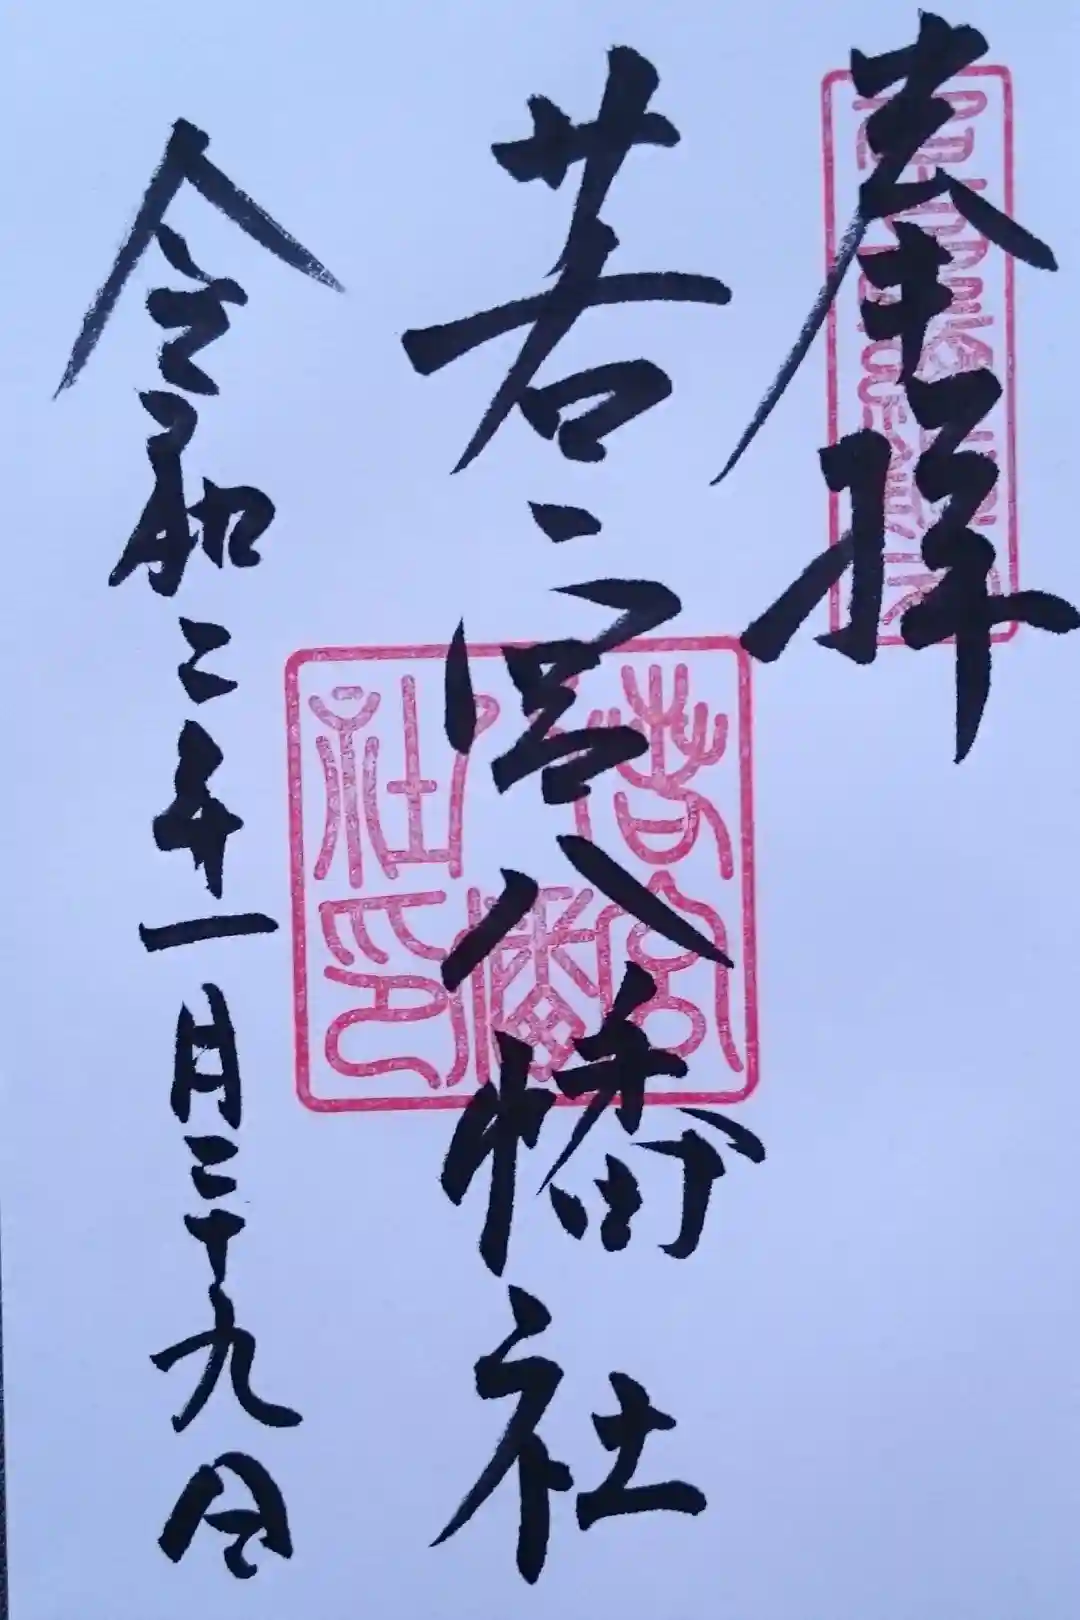 奉拝
若宮八幡社
令和二年一月二十九日
若宮八幡社印